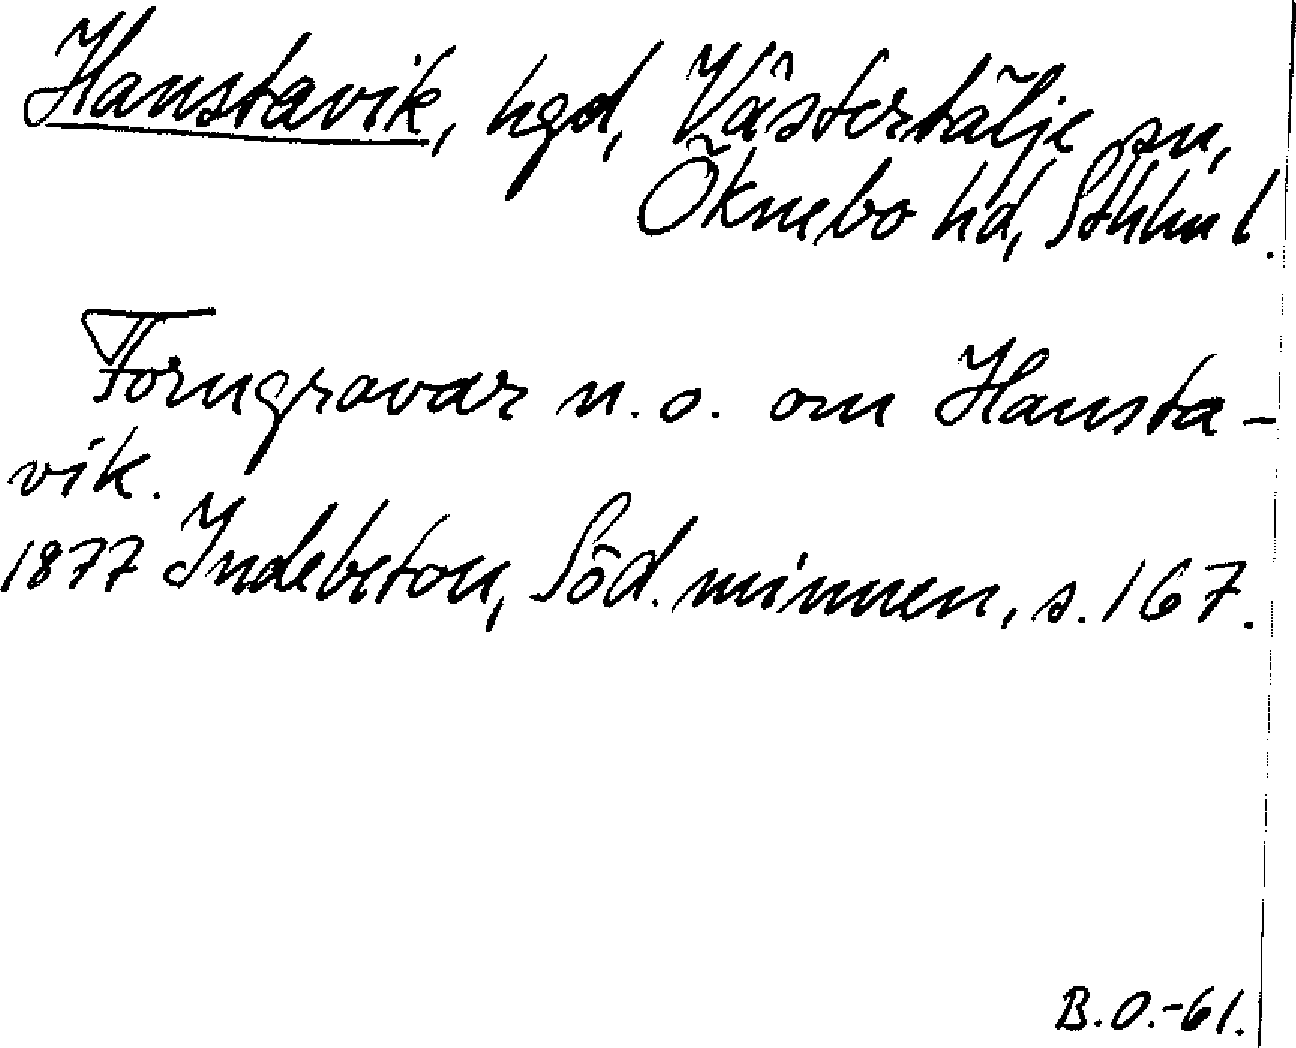 Hanstavik, hgd, Västertälje sn,
Öknebo hd, Sthlm l.
Forngravar n.o. om Hansta-
vik.
1877 Indebetou, Söd. minnen, s. 167.
B.O.-61.